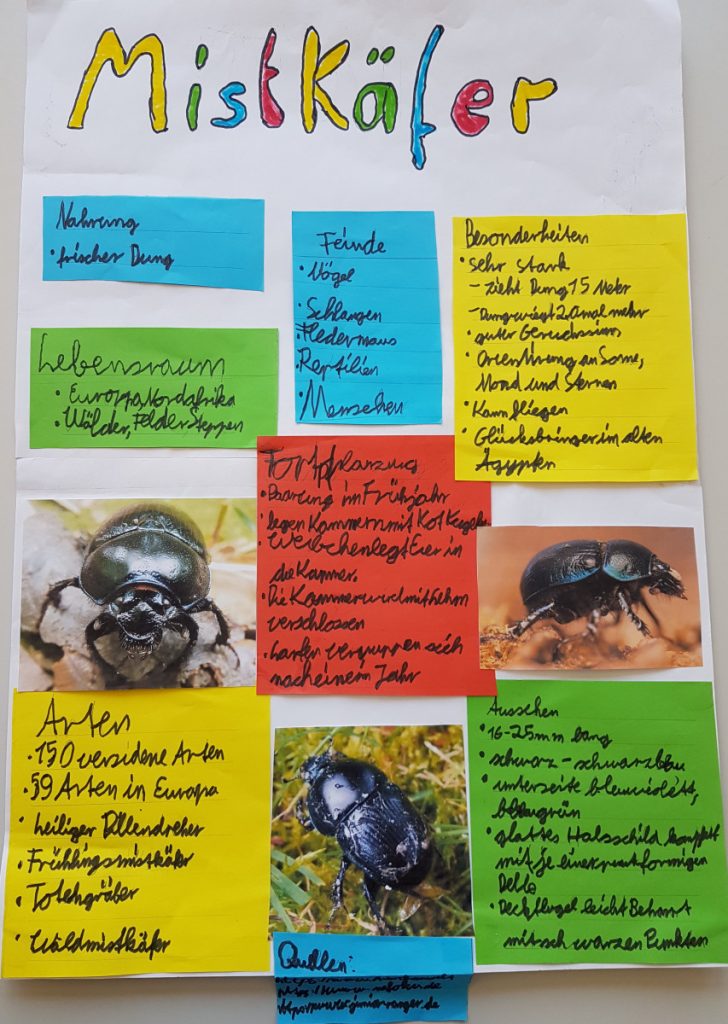 Mistkäfer
Nahrung
• frischer Dung
Feinde
• Vögel
• Schlangen
• Fledermaus
• Reptilien
• Menschen
Besonderheiten
• sehr stark
- zieht Dung 15 Meter
- Dung wiegt mal mehr
• guter Geruchssinn
• Orientirung an Sonne,
Mond und Sternen
• Kann fliegen
• Glücksbringer im alten
Ägypten
Lebensraum
• Europa Nordafrika
• Wälder, Felder Steppen
Fortpflanzung
• Paarung im Frühjahr
• legen Kammern mit Kot Kugeln
• Weibchen legt Eier in
die Kammer.
• Die Kammer wird mit Lehm
verschlossen
• Larfen verpuppen sich
nach einem Jahr
Arten
• 150 versidene Arten
• 59 Arten in Europa
• heiliger Pillendreher
• Frühlingsmistkäfer
• Totengräber
• Waldmistkäfer
Aussehen
• 16-25mm lang
• schwarz - schwarzblau
• unterseite blauviolett,
blaugrün
• glattes Halsschild
mit je einer
Delle
• Deckflügel leicht Behart
mit schwarzen Punkten
Quellen: